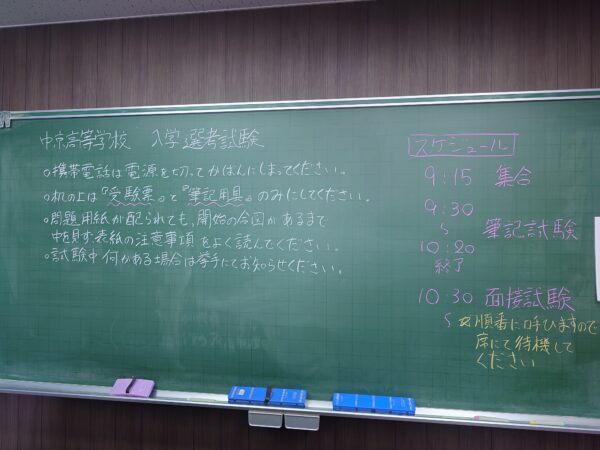 中京高等学校 入学選考試験
○携帯電話は電源を切ってかばんにしまってください。
○机の上は『受験票』と『筆記用具』のみにしてください。
○問題用紙が配られても、開始の合図があるまで
中を見ず表紙の注意事項をよく読んでください。
○試験中何かある場合は挙手にてお知らせください。
スケジュール
9:15 集合
9:30
〜 筆記試験
10:20
終了
10:30 面接試験
〜 ※順番に呼びますので
席にて待機して
ください